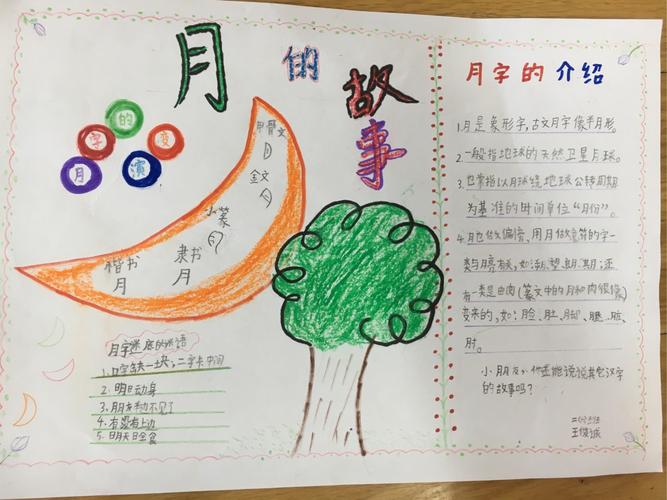 月的故事
月字的演变
甲骨文
金文
小篆
隶书
月
楷书
月
月字谜底的谜语
1、口字缺一块,二字卡中间
2、明日动身
3、朋友半边不见了
4、有没有上边
5、明天日全食
月字的介绍
1.月是象形字,古文月字像半月形。
2.一般指地球的天然卫星月球。
3.也常指以月球绕地球公转周期
为基准的时间单位“月份”。
4.月也做偏旁、用月做意符的字一
类与月亮有关,如:
有一类是由肉(篆文中的月和肉很像)
变来的,如:脸、肚、脚、腿、脏、
肝。
小朋友,你还能说说其他汉字
的故事吗?
王俊诚